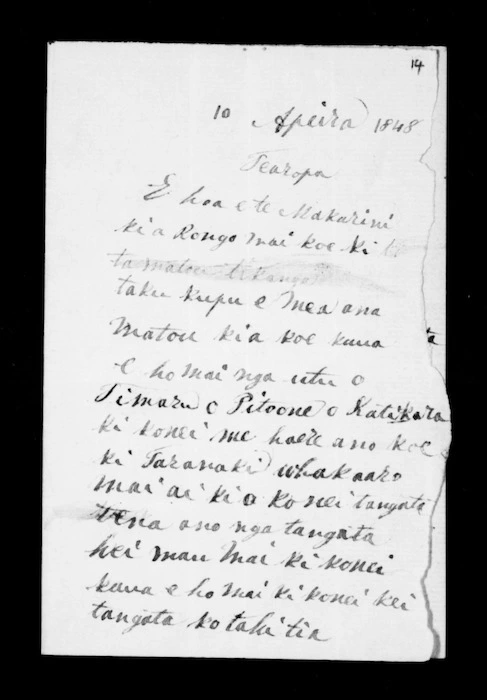 14
10 Apeira 1848
Tearopa
E hoa e te Makarini
kia Rongo mai koe ki
ta matou tikanga
taku kupu e mea ana
Matou kia koe kaua
ta
e ho mai nga utu o
Timaru o Pitoone o Katikara
ki konei me haere ano koe
ki Taranaki whakaaro
mai ai ki a ko nei tangata
tena ano nga tangata
hei mau mai ki konei
kaua e ho mai ki konei kei
tangata ko tahi tia